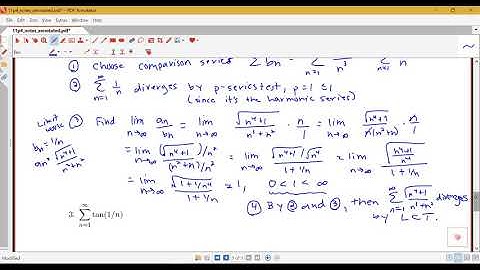 11p4_notes_annotated.pdf* - PDF Annotator
11p4_notes_annotated.pdf*
① Choose comparison series Σ bn = Σ n=1 / n³ Σ n=1 n
② ∞ Σ n=1 1/n diverges by p-series test, p=1 ≤1
(since it's the harmonic series)
Limit work ③ Find lim n→∞ an/bn = lim n→∞ √(n⁴+1) / n³+n² · n/1 = lim n→∞ √(n⁴+1) / n(n²+n) · n/1
bn = 1/n
an = √(n⁴+1) / n³+n²
= lim n→∞ (√(n⁴+1))/n² / (n²+n)/n² = lim n→∞ √(n⁴+1)/√n⁴ / 1+1/n = lim n→∞ √(n⁴+1 / n⁴) / 1+1/n
= lim n→∞ √(1+1/n⁴) / 1+1/n = 1, 0<1<∞
④ By ② and ③, then ∞ Σ n=1 √(n⁴+1) / n³+n² diverges
by LCT.
3. ∞ Σ n=1 tan(1/n)